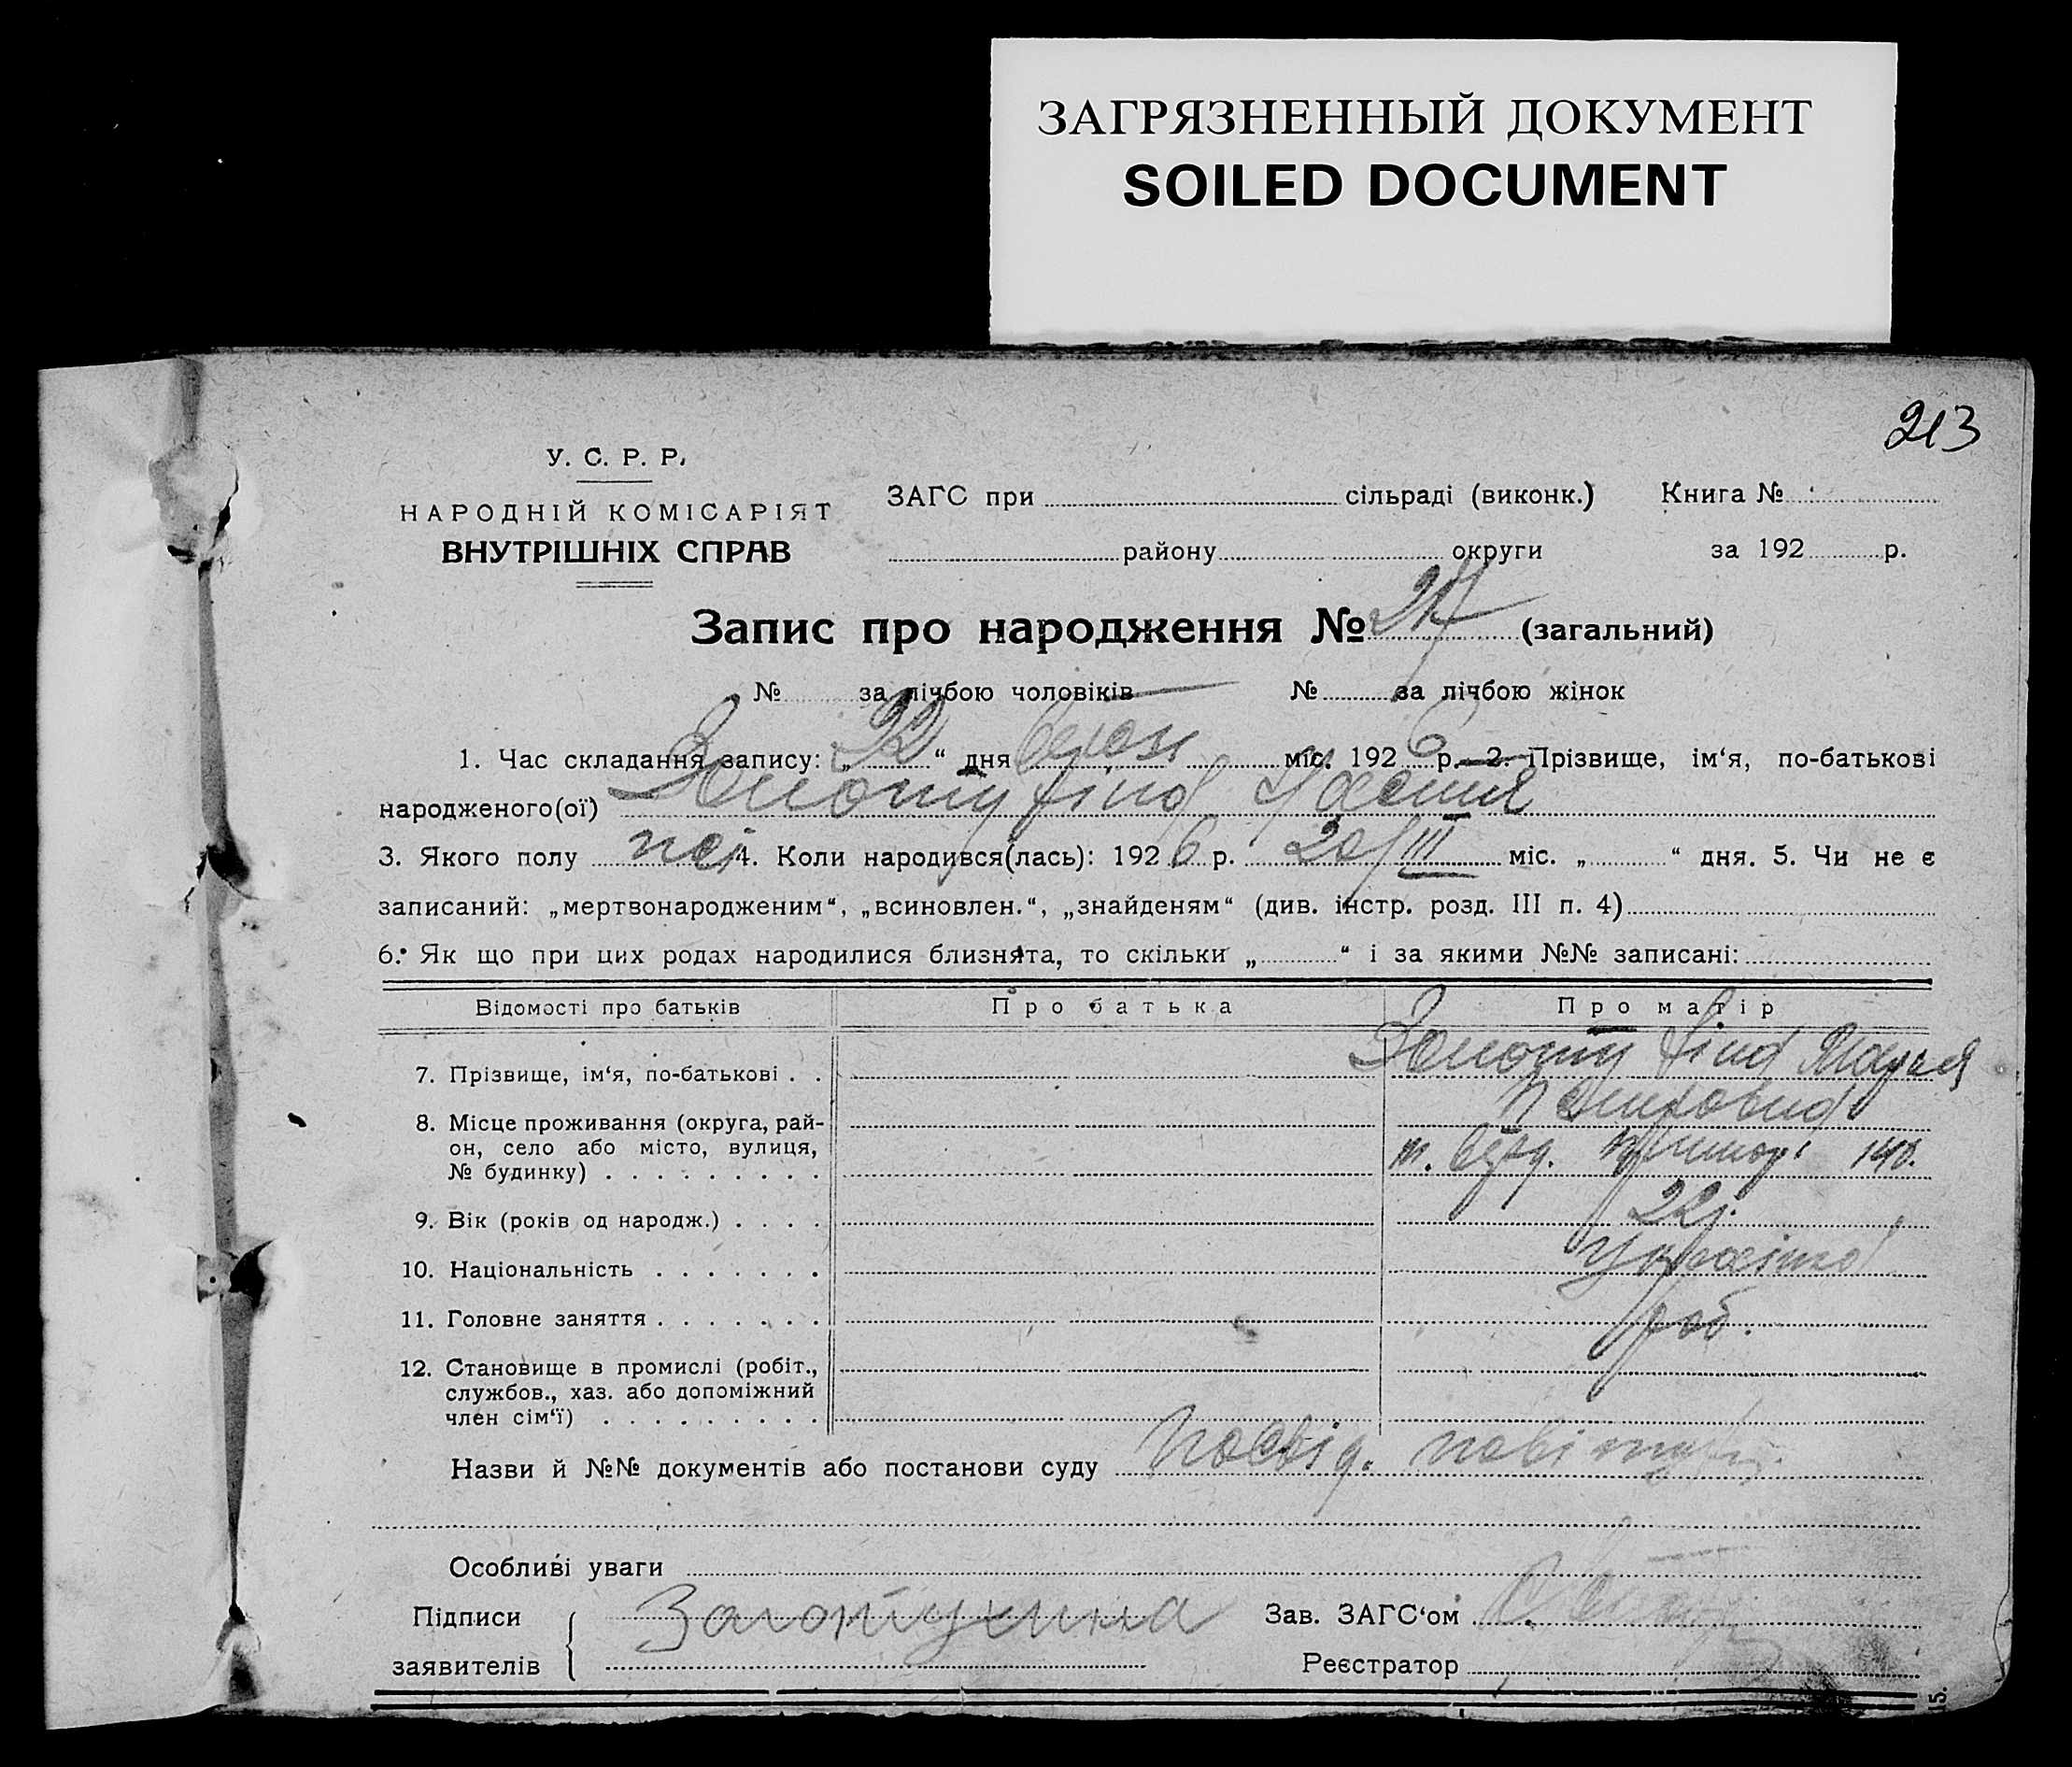 ЗАГРЯЗНЕННЫЙ ДОКУМЕНТ
SOILED DOCUMENT
213
У. С. Р. Р.
НАРОДНІЙ КОМІСАРІЯТ
ВНУТРІШНІХ СПРАВ
ЗАГС при сільраді (виконк.) Книга №
району округи за 192 р.
Запис про народження № 217 (загальний)
№ за лічбою чоловіків № за лічбою жінок
1. Час складання запису: „ “ дня міс. 1926 р. 2. Прізвище, ім‘я, по-батькові
народженого(ої)
3. Якого полу 4. Коли народився(лась): 1926 р. 20/III міс. „ “ дня. 5. Чи не є
записаний: „мертвонародженим“, „всиновлен.“, „знайденям“ (див. інстр. розд. III п. 4)
6. Як що при цих родах народилися близнята, то скільки „ “ і за якими №№ записані:
Відомості про батьків Про батька Про матір
7. Прізвище, ім‘я, по-батькові . . Марья
8. Місце проживання (округа, рай-
он, село або місто, вулиця,
№ будинку) . . . . . . . . .
9. Вік (років од народж.) . . . . 22 р.
10. Національність . . . . . . . Українка
11. Головне заняття . . . . . . . роб.
12. Становище в промислі (робіт.,
службов., хаз. або допоміжний
член сім‘ї) . . . . . . . . .
Назви й №№ документів або постанови суду Посвід.
Особливі уваги
Підписи Зав. ЗАГС‘ом
заявителів Реєстратор